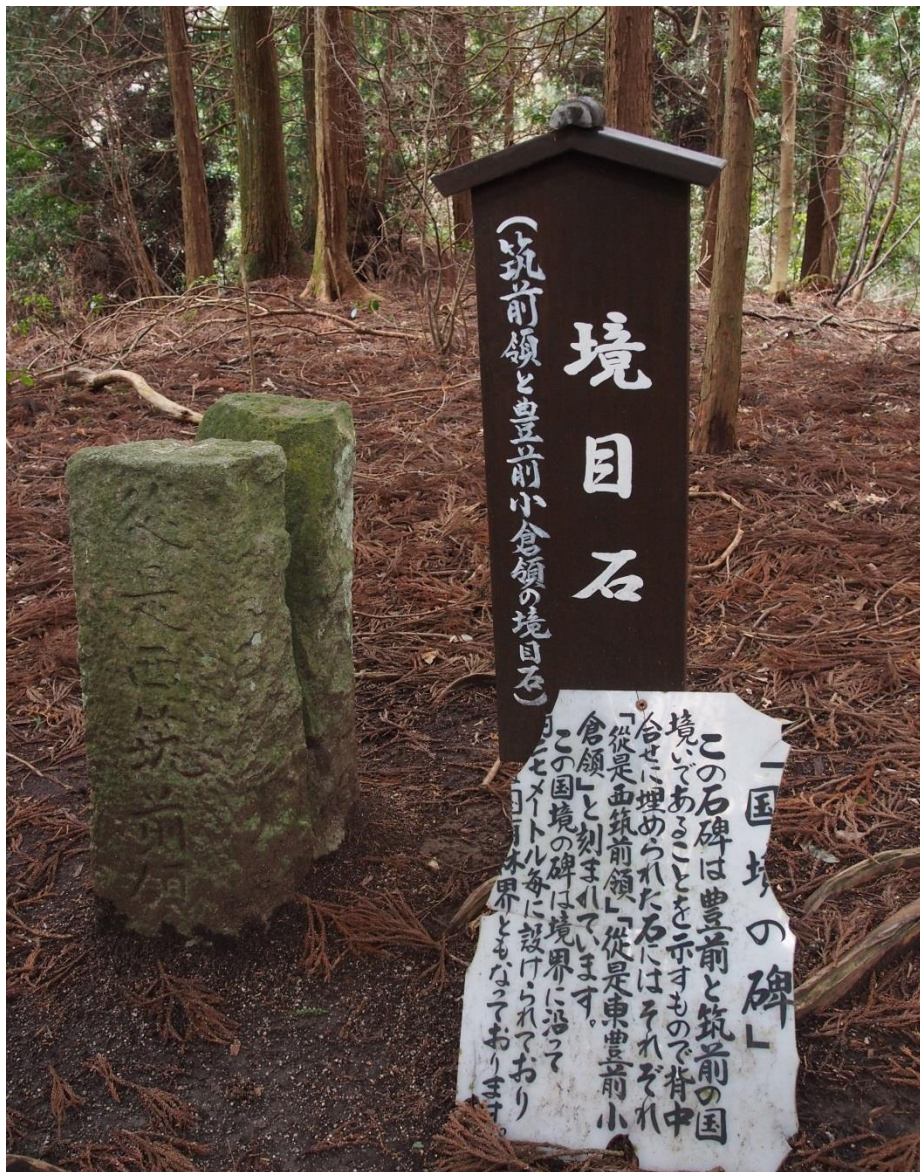 從是西筑前領
境目石
(筑前領と豊前小倉領の境目石)
「国境の碑」
この石碑は豊前と筑前の国
境いであることを示すもので背中
合せに埋められた石にはそれぞれ
「從是西筑前領」「從是東豊前小
倉領」と刻まれています。
この国境の碑は境界に沿って
七メートル毎に設けられており
国有林界ともなっております